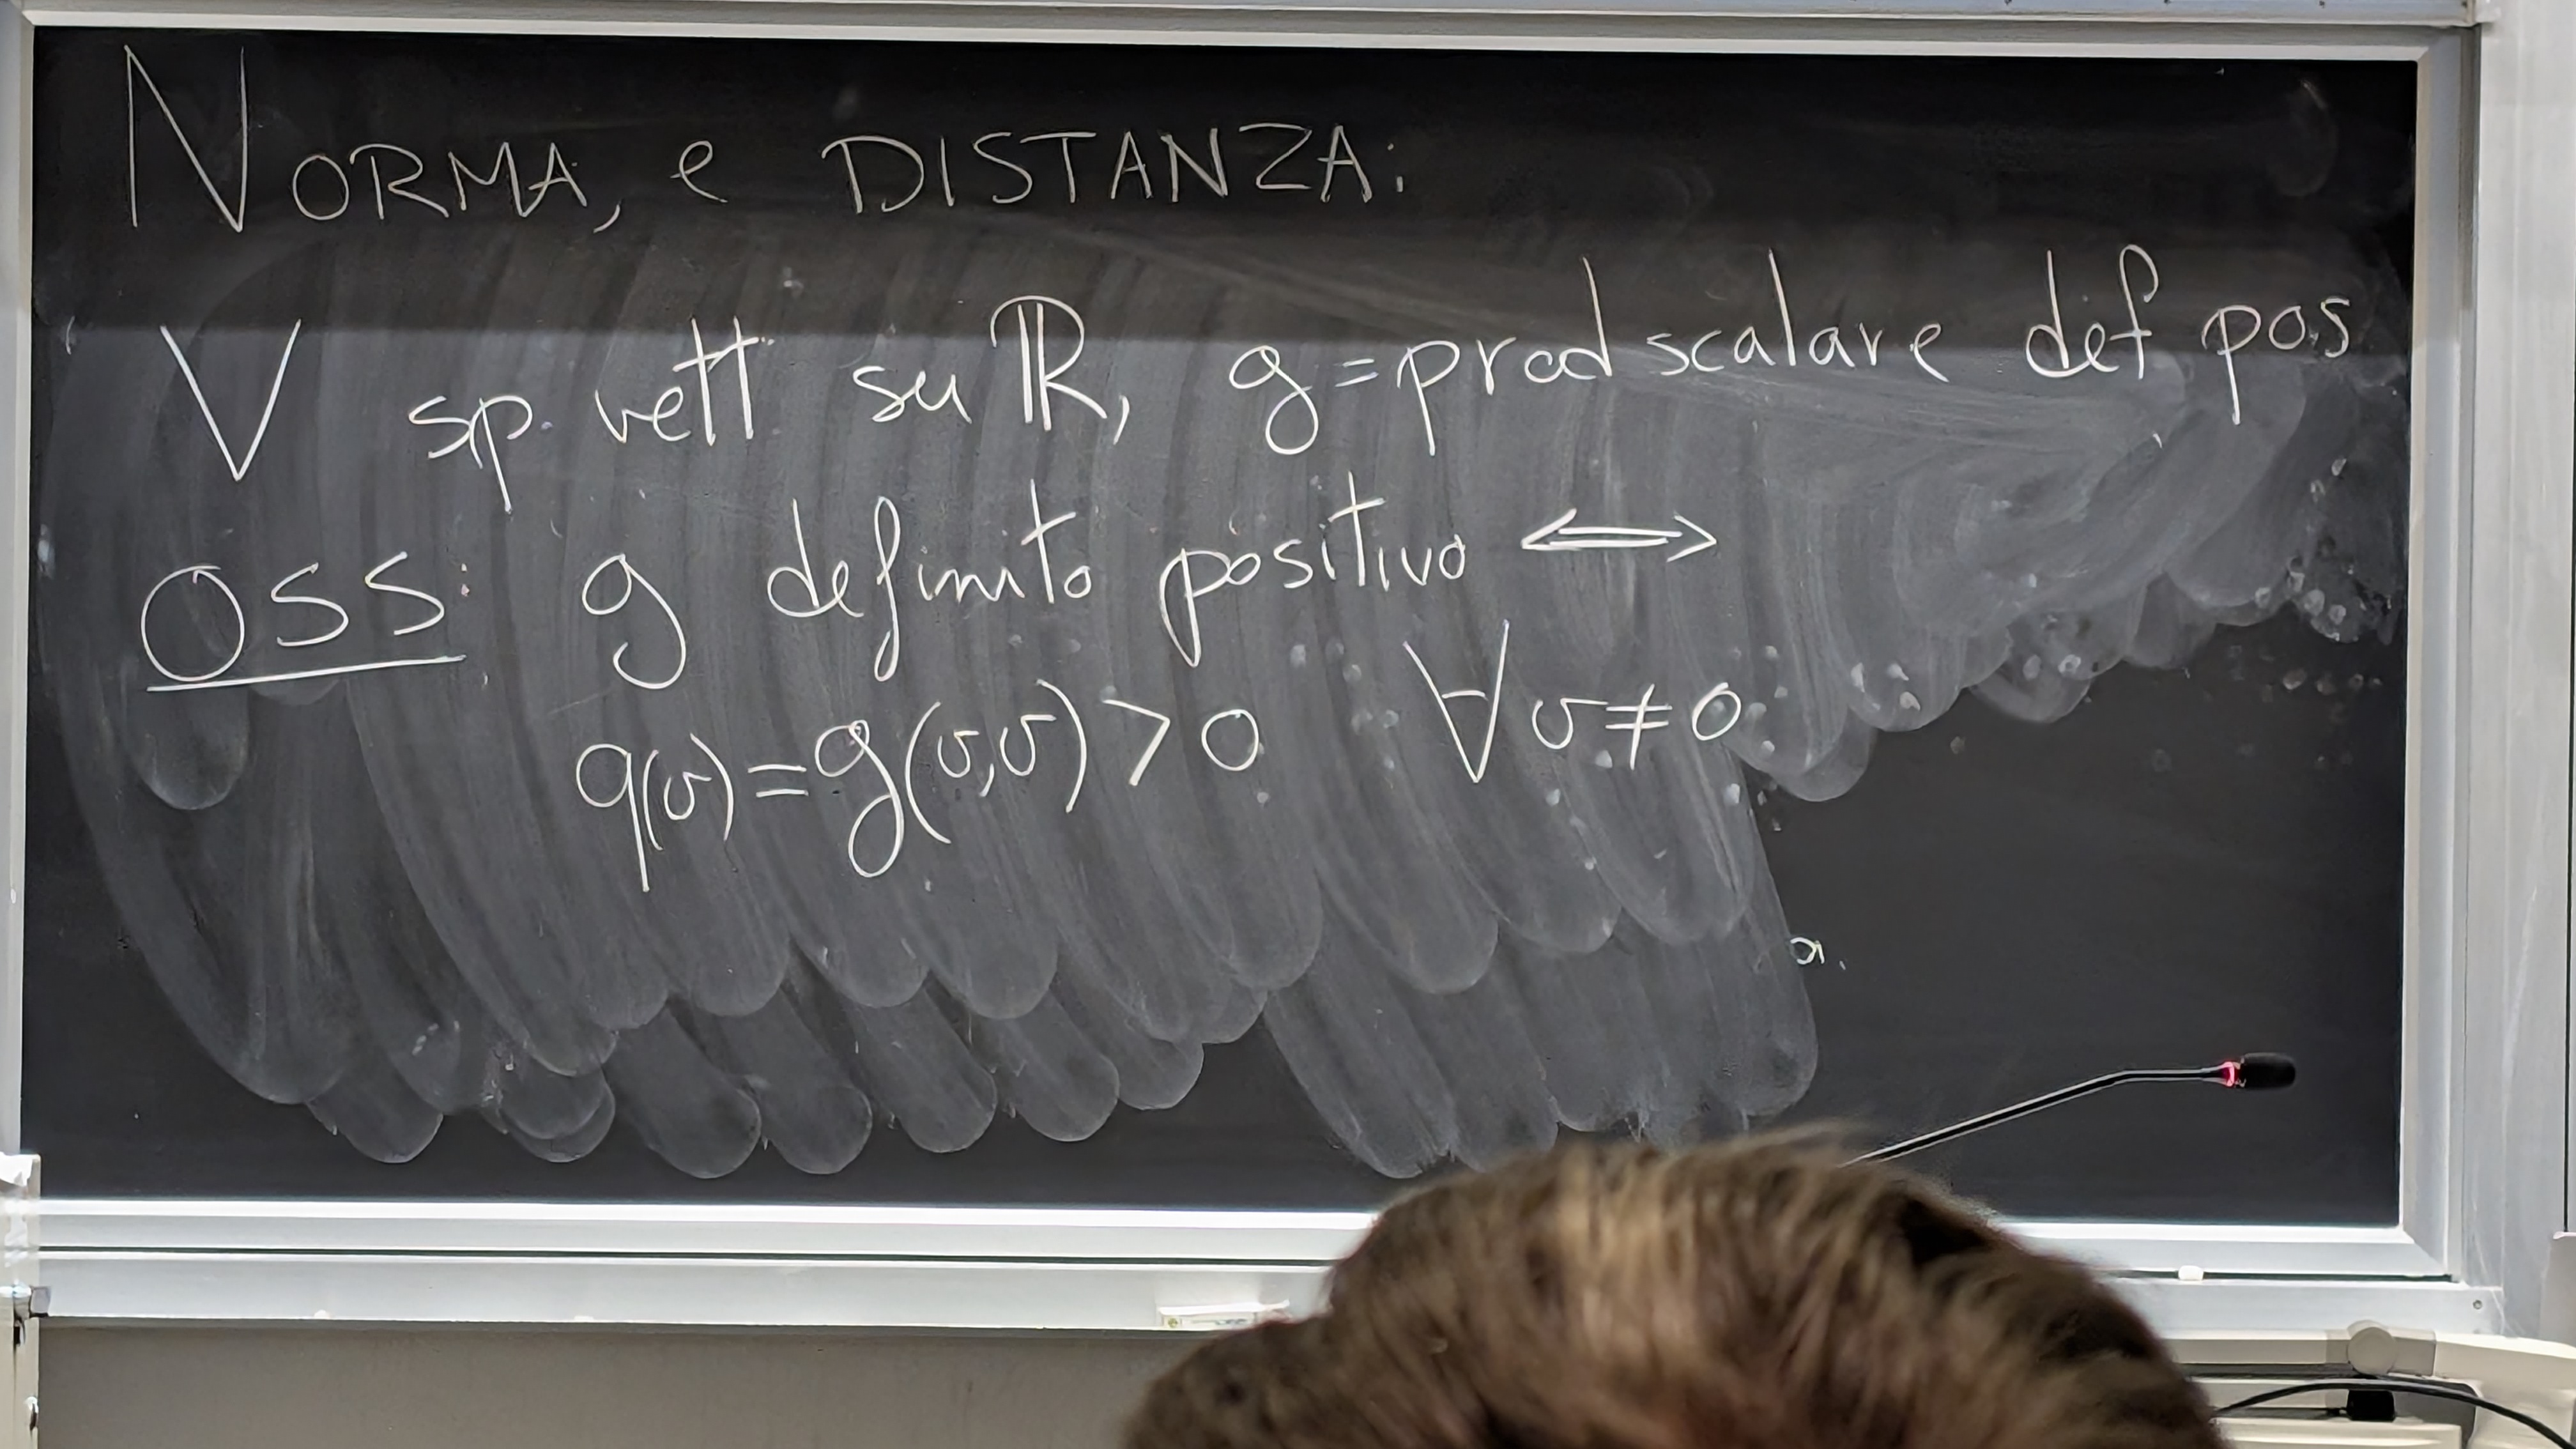 NORMA, e DISTANZA:
V sp. vett su ℝ, g = prod scalare def pos
OSS: g definito positivo ⟺
q(v) = g(v,v) > 0 ∀ v ≠ 0